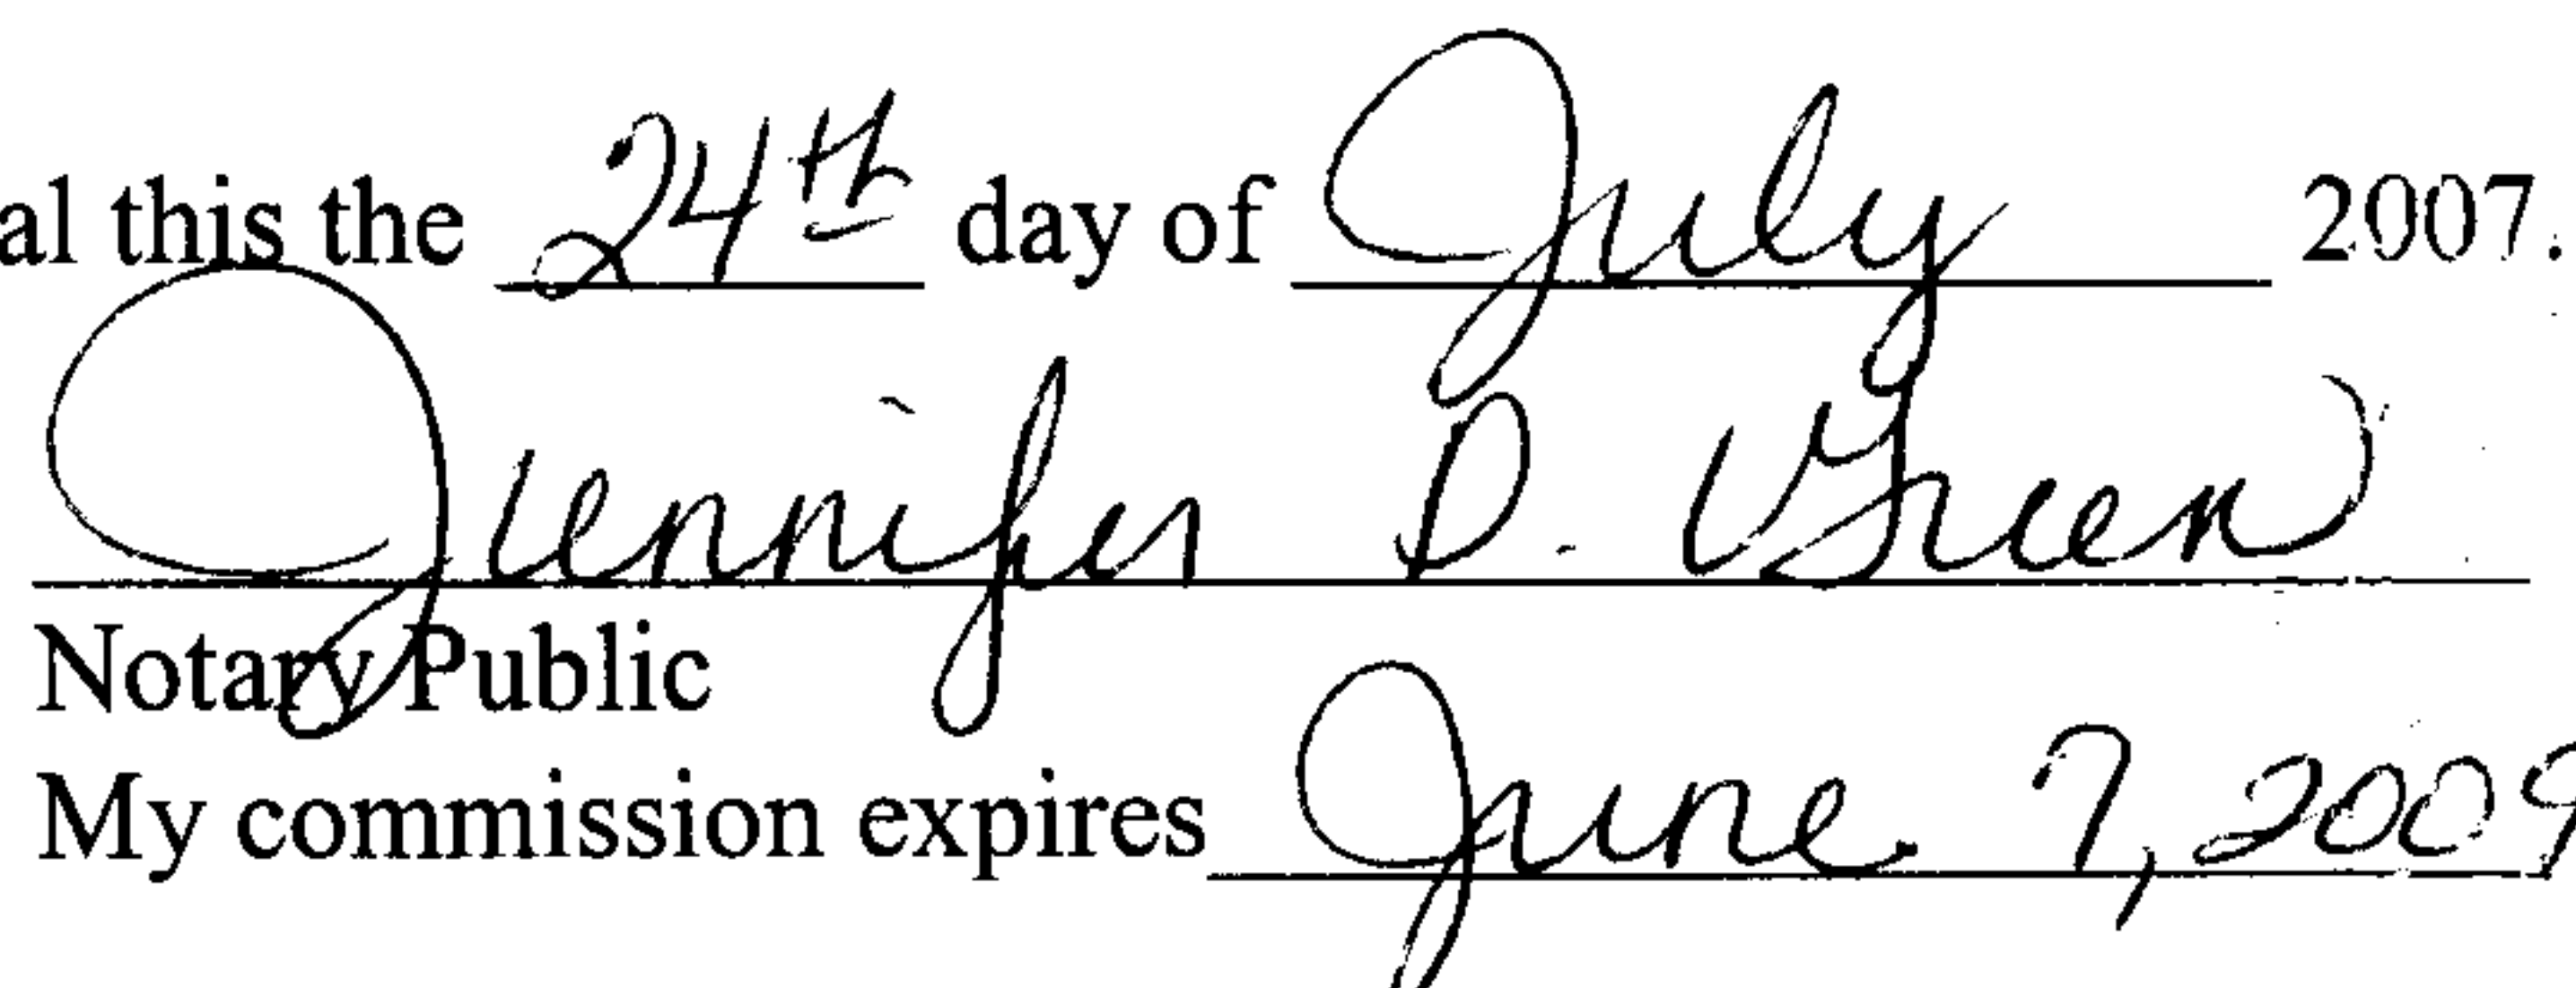 al this the 24th day of July 2007.
Jennifer D. Green
Notary Public
My commission expires June 7, 2009